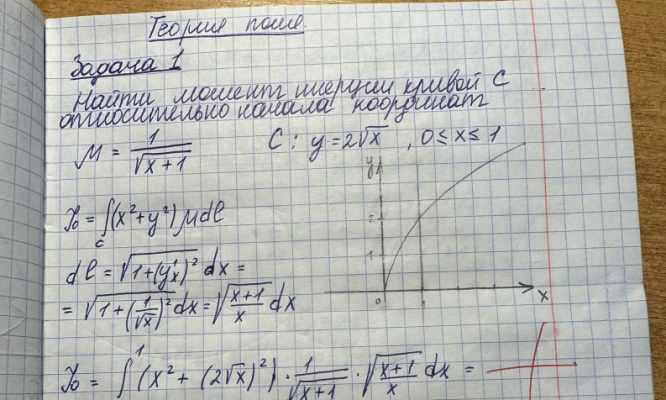 Теория поля
Задача 1
Найти момент инерции кривой C
относительно начала координат
μ = 1/√(x+1)   C: y = 2√x , 0 ≤ x ≤ 1
y
2
1
0 1 x
J₀ = ∫_C (x² + y²) μ dl
dl = √(1 + (y'ₓ)²) dx =
= √(1 + (1/√x)²) dx = √((x+1)/x) dx
J₀ = ∫¹ (x² + (2√x)²) · 1/√(x+1) · √((x+1)/x) dx =